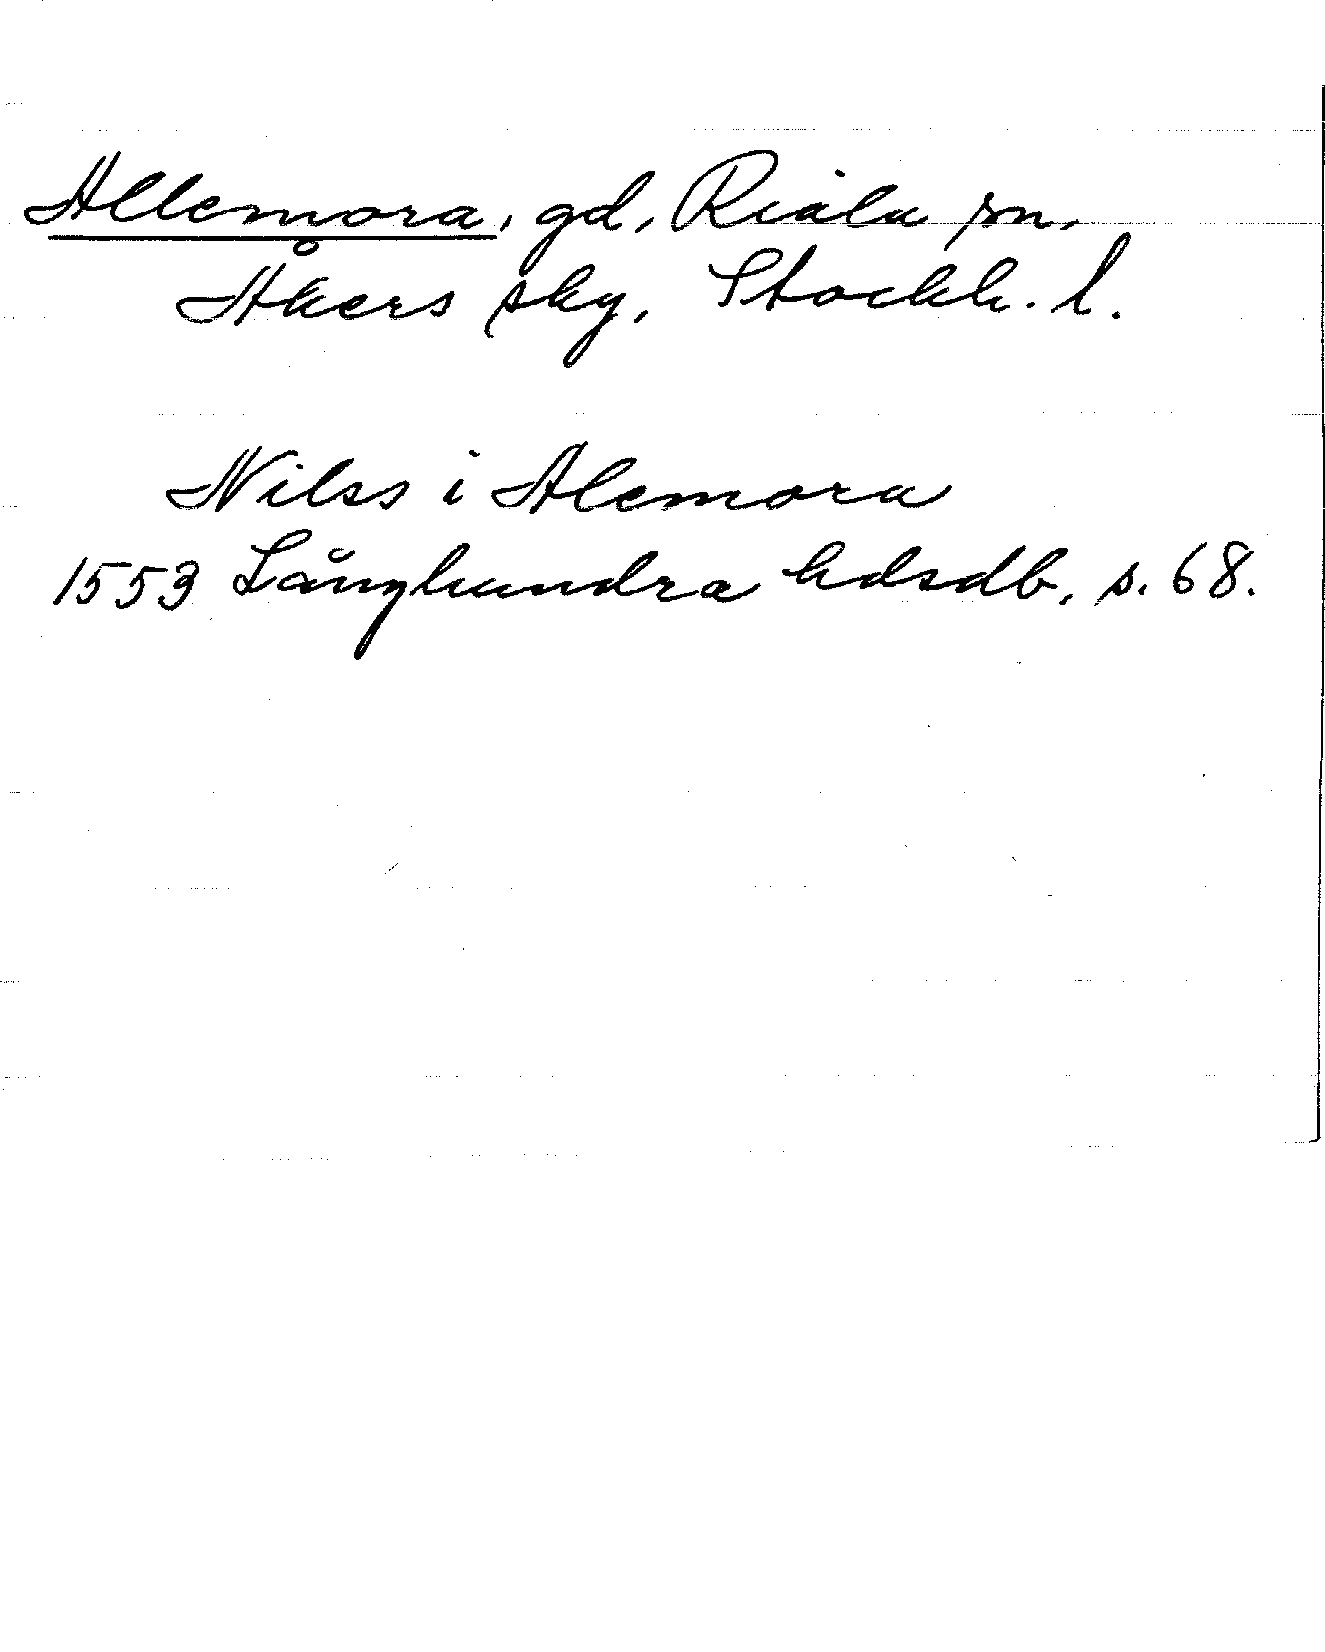 Allemora, gd, Riala sn,
Åkers sky, Stockh. l.
Nilss i Alemora
1553 Långhundra hdsdb, s. 68.